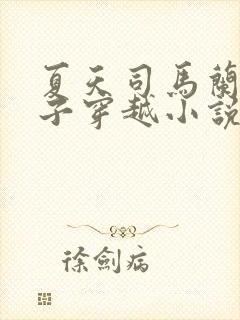 夏天司馬蘭
子穿越小說
徐劍病